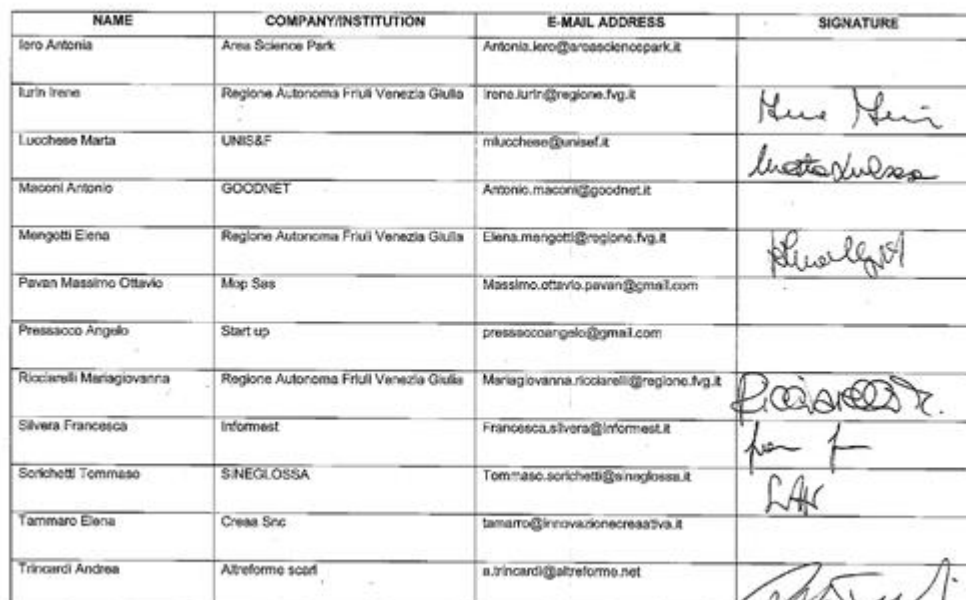 NAME COMPANY/INSTITUTION E-MAIL ADDRESS SIGNATURE
Iero Antonia Area Science Park Antonia.iero@areasciencepark.it
Iurin Irene Regione Autonoma Friuli Venezia Giulia Irene.iurin@regione.fvg.it
Lucchese Marta UNIS&F mlucchese@unisef.it
Maconi Antonio GOODNET Antonio.maconi@goodnet.it
Mengotti Elena Regione Autonoma Friuli Venezia Giulia Elena.mengotti@regione.fvg.it
Pavan Massimo Ottavio Mop Sas Massimo.ottavio.pavan@gmail.com
Pressacco Angelo Start up pressaccoangelo@gmail.com
Ricciarelli Mariagiovanna Regione Autonoma Friuli Venezia Giulia Mariagiovanna.ricciarelli@regione.fvg.it
Silvera Francesca Informest Francesca.silvera@informest.it
Sorichetti Tommaso SINEGLOSSA Tommaso.sorichetti@sineglossa.it
Tammaro Elena Creaa Snc tamarro@innovazionecreaativa.it
Trincardi Andrea Altreforme scarl a.trincardi@altreforme.net